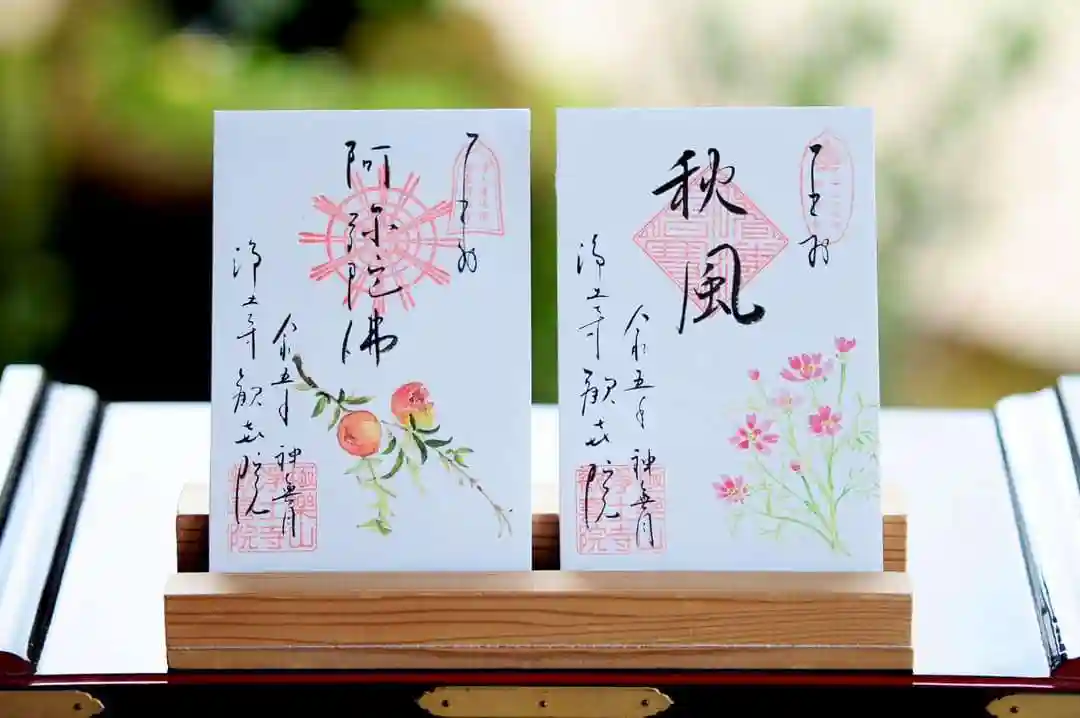 奉拝
秋風
令和五年 神無月
浄土寺 歓喜院
奉拝
阿弥陀佛
令和五年 神無月
浄土寺 歓喜院